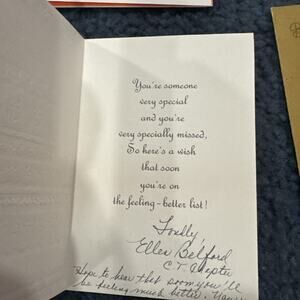 You're someone
very special
and you're
very specially missed,
So here's a wish
that soon
you're on
the feeling-better list!
Fondly,
Ellen Belford
C.T. Chapter
Hope to hear that soon you'll
be feeling much better.